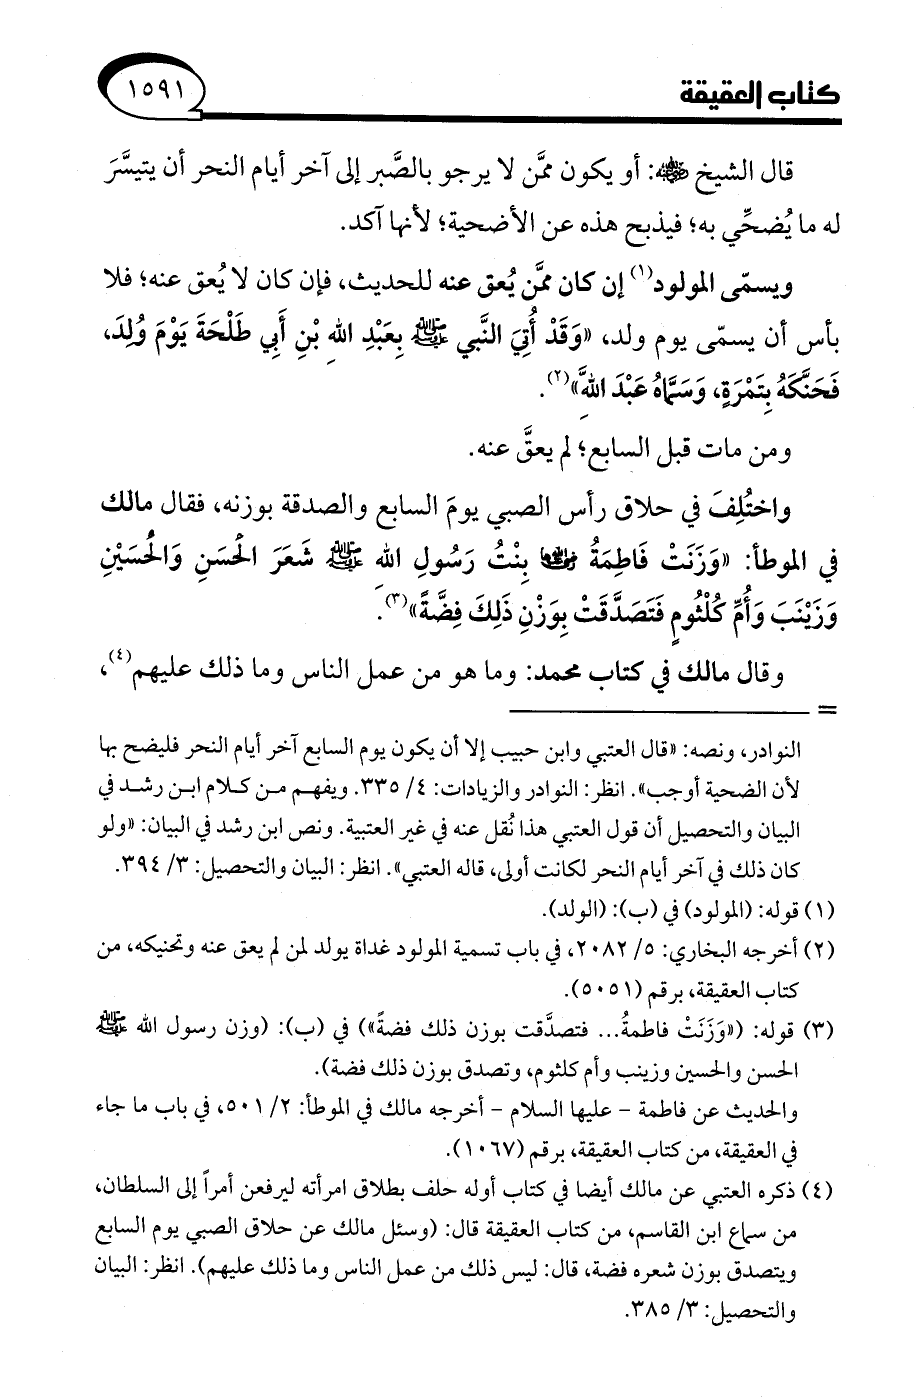 كتاب العقيقة
١٥٩١
قال الشيخ ﵁: أو يكون ممَّن لا يرجو بالصَّبر إلى آخر أيام النحر أن يتيسَّرَ
له ما يُضحِّي به؛ فيذبح هذه عن الأضحية؛ لأنها آكد.
ويسمّى المولود(١) إن كان ممَّن يُعق عنه للحديث، فإن كان لا يُعق عنه؛ فلا
بأس أن يسمّى يوم ولد، «وَقَدْ أُتِيَ النَّبي ﷺ بِعَبْدِ اللهِ بْنِ أَبِي طَلْحَةَ يَوْمَ وُلِدَ،
فَحَنَّكَهُ بِتَمْرَةٍ، وَسَمَّاهُ عَبْدَ اللهِ»(٢).
ومن مات قبل السابع؛ لم يعقَّ عنه.
واختُلِفَ في حلاق رأس الصبي يومَ السابع والصدقة بوزنه، فقال مالك
في الموطأ: «وَزَنَتْ فَاطِمَةُ ﵂ بِنْتُ رَسُولِ اللهِ ﷺ شَعَرَ الحُسَنِ وَالحُسَيْنِ
وَزَيْنَبَ وَأُمِّ كُلْثُومٍ فَتَصَدَّقَتْ بِوَزْنِ ذَلِكَ فِضَّةً»(٣).
وقال مالك في كتاب محمد: وما هو من عمل الناس وما ذلك عليهم(٤)،
=
النوادر، ونصه: «قال العتبي وابن حبيب إلا أن يكون يوم السابع آخر أيام النحر فليضح بها
لأن الضحية أوجب». انظر: النوادر والزيادات: ٤/ ٣٣٥. ويفهم من كلام ابن رشد في
البيان والتحصيل أن قول العتبي هذا نُقل عنه في غير العتبية. ونص ابن رشد في البيان: «ولو
كان ذلك في آخر أيام النحر لكانت أولى، قاله العتبي». انظر: البيان والتحصيل: ٣/ ٣٩٤.
(١) قوله: (المولود) في (ب): (الولد).
(٢) أخرجه البخاري: ٥/ ٢٠٨٢، في باب تسمية المولود غداة يولد لمن لم يعق عنه وتحنيكه، من
كتاب العقيقة، برقم (٥٠٥١).
(٣) قوله: («وَزَنَتْ فاطمةُ... فتصدَّقت بوزن ذلك فضةً») في (ب): (وزن رسول الله ﷺ
الحسن والحسين وزينب وأم كلثوم، وتصدق بوزن ذلك فضة).
والحديث عن فاطمة - عليها السلام - أخرجه مالك في الموطأ: ٢/ ٥٠١، في باب ما جاء
في العقيقة، من كتاب العقيقة، برقم (١٠٦٧).
(٤) ذكره العتبي عن مالك أيضا في كتاب أوله حلف بطلاق امرأته ليرفعن أمراً إلى السلطان،
من سماع ابن القاسم، من كتاب العقيقة قال: (وسئل مالك عن حلاق الصبي يوم السابع
ويتصدق بوزن شعره فضة، قال: ليس ذلك من عمل الناس وما ذلك عليهم). انظر: البيان
والتحصيل: ٣/ ٣٨٥.